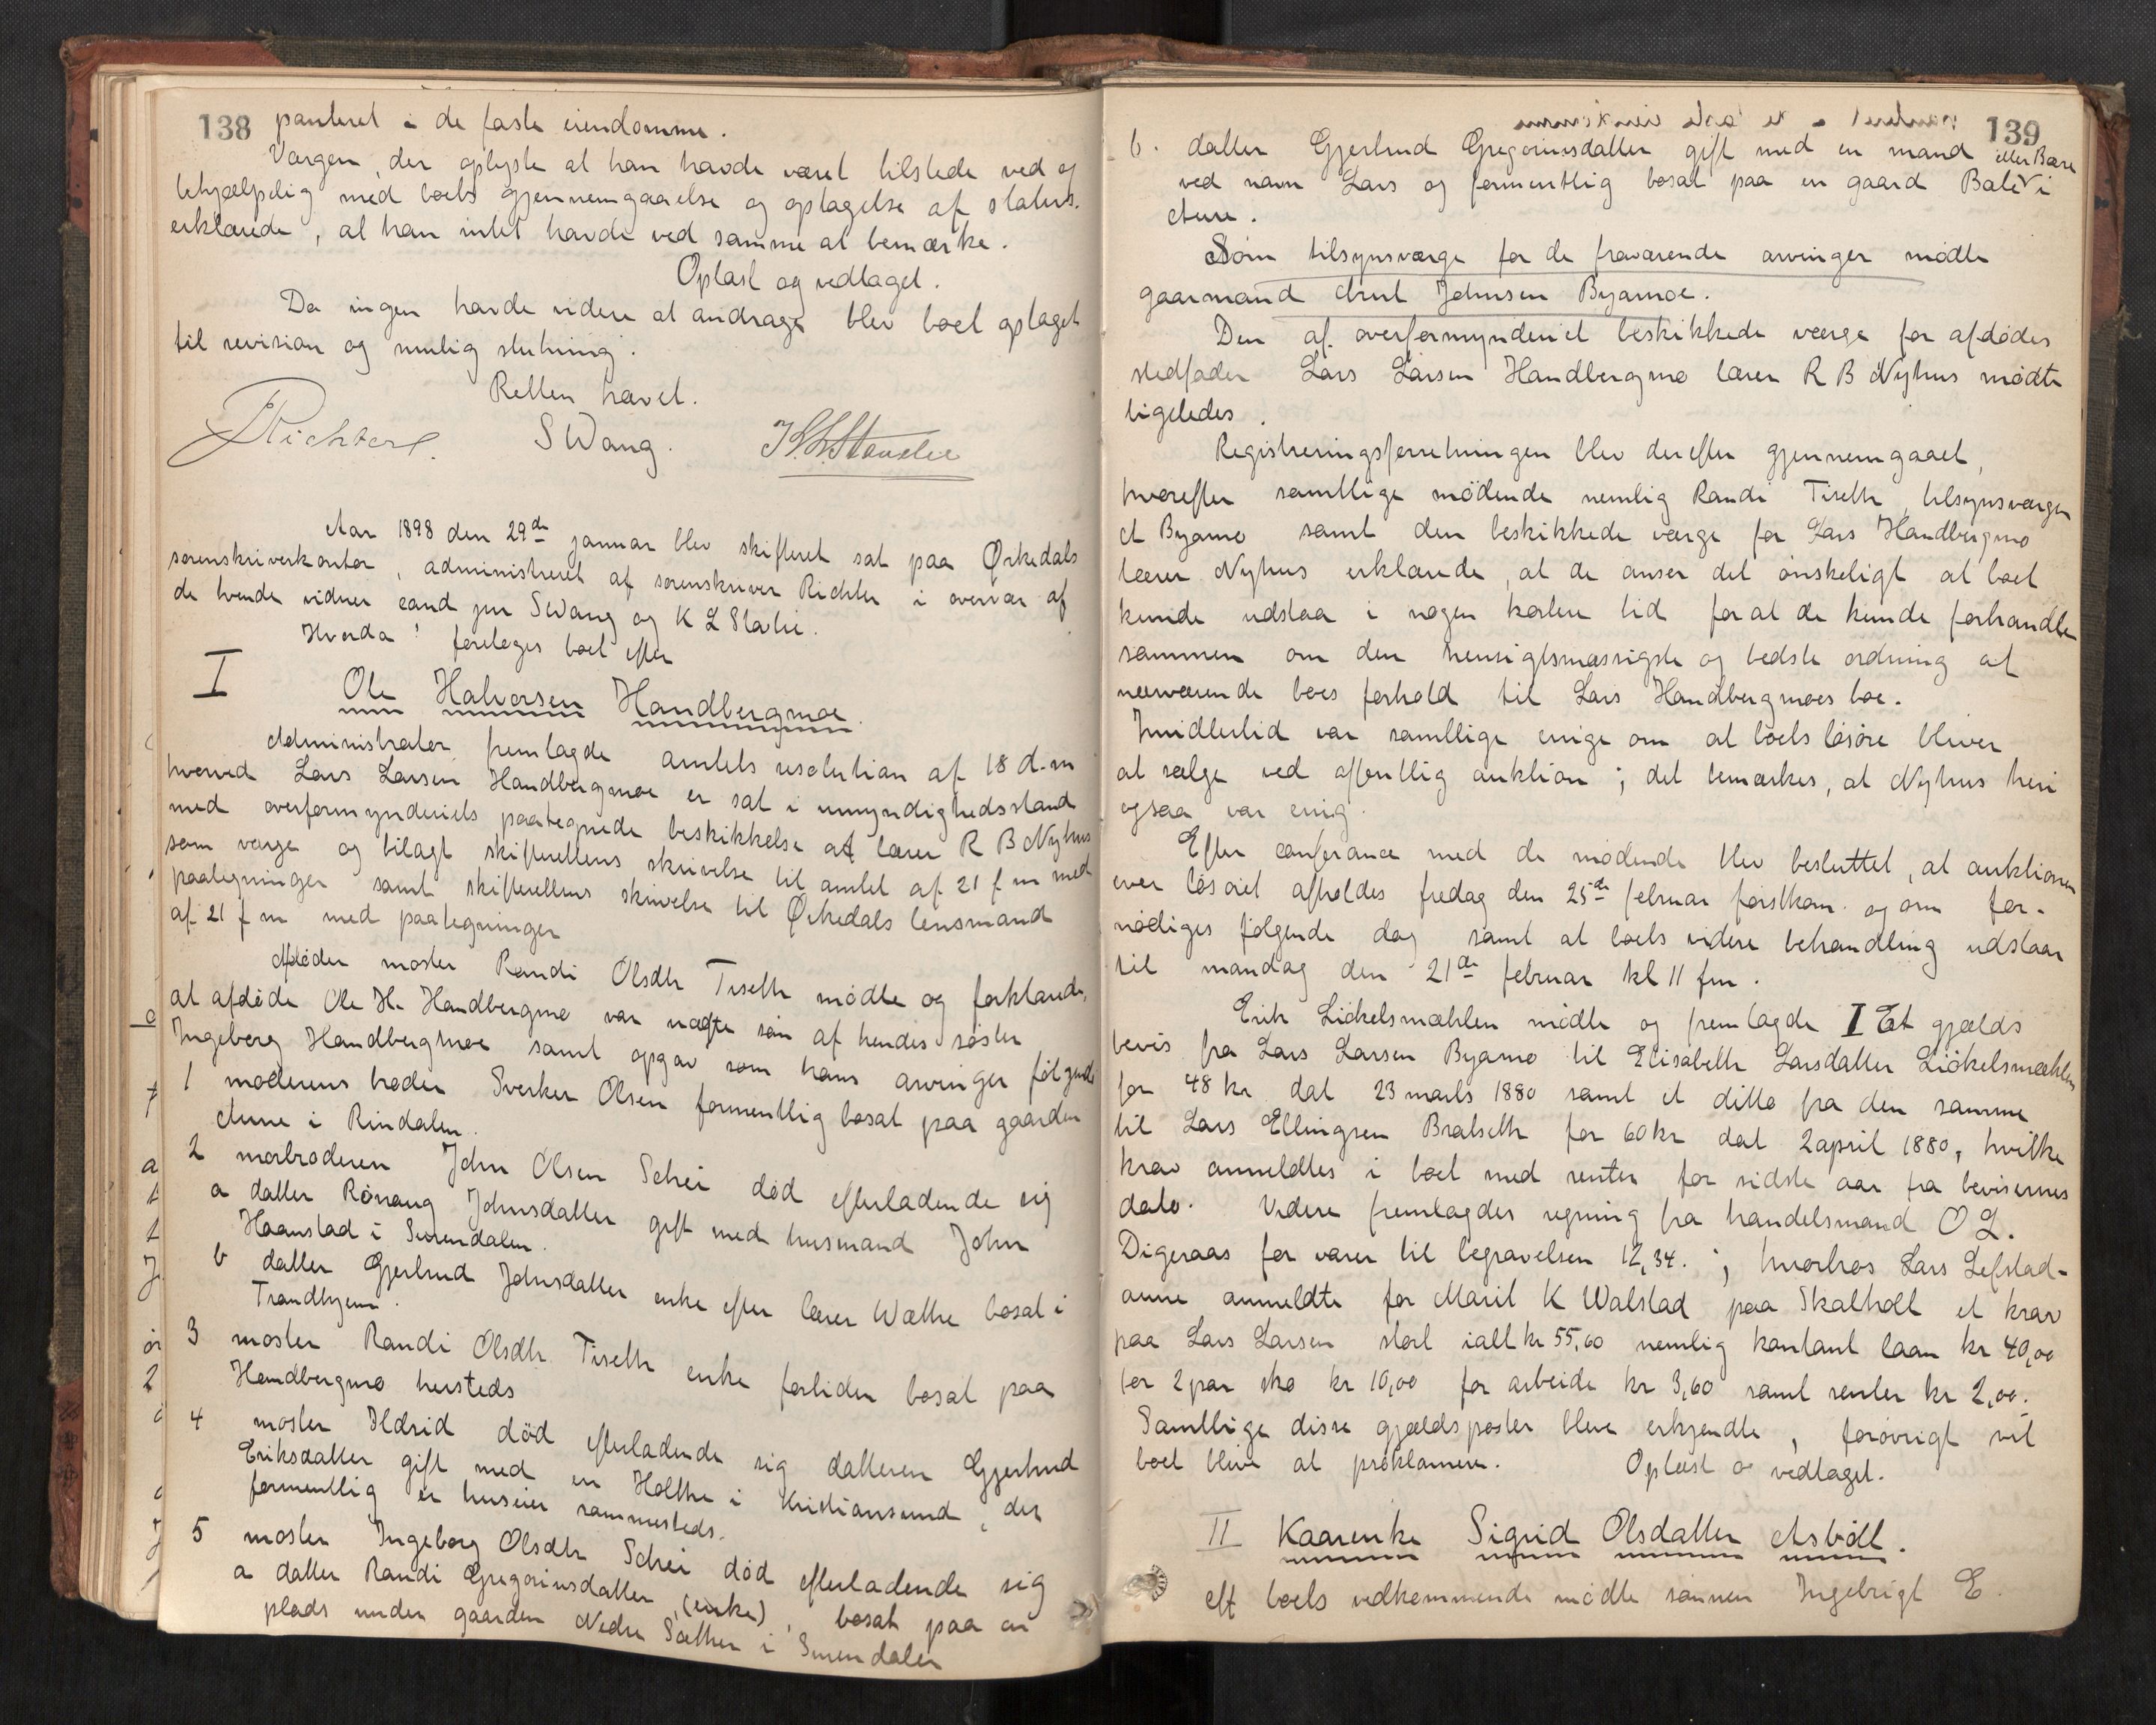 138 panteret i de faste eiendomme.
Værgen, der oplyste at han havde været tilstede ved og
behjælpelig med boets gjennemgaaelse og optagelse af status.
erklærede, at han intet havde ved samme at bemærke.
Oplæst og vedtaget.
Da ingen havde videre at andrage blev boet optaget
til revision og mulig slutning.
Retten hævet.
Richter. S Wang. K. L. Stavlie
Aar 1898 den 29de januar blev skifteret sat paa Ørkedals
sorenskriverkontor, administreret af sorenskriver Richter i overvær af
de tvende vidner cand jur S Wang og K L Stavlie.
Hvorda foretoges boet efter
I
Ole Halvorsen Handbergmoe.
Administrator fremlagde amtets resolution af 18 d.m
hvorved Lars Larsen Handbergmoe er sat i umyndighedsstand
med overformynderiets paategnede beskikkelse af lærer R B Nyhus
som værge og bilagt skifterettens skrivelse til amtet af 21 f m med
paategninger samt skifterettens skrivelse til Ørkedals lensmand
af 21 f m med paategninger
Afdødes moster Randi Olsdtr Tiseth mødte og forklarede,
at afdøde Ole H. Handbergmo var uægte søn af hendes søster
Ingeborg Handbergmoe samt opgav som hans arvinger følgende
1 moderens broder Sverker Olsen formentlig bosat paa gaarden
Aune i Rindalen.
2 morbroderen John Olsen Schei død efterladende sig
a datter Rønaug Johnsdatter gift med husmand John
Haanstad i Surendalen.
b datter Gjertrud Johnsdatter enke efter lærer Wæthe bosat i
Trondhjem.
3 moster Randi Olsdtr Tiseth enke fortiden bosat paa
Handbergmo hersteds
4 moster Ildrid død efterladende sig datteren Gjertrud
Eriksdatter gift med en Holthe i Kristiansund, der
formentlig er huseier sammesteds.
5 moster Ingeborg Olsdtr Schei død efterladende sig
a datter Randi Gregoriusdatter (enke), bosat paa en
plads under gaarden Nedre Sæther i Surendalen
139
b. datter Gjertrud Gregoriusdatter gift med en mand
ved navn Lars og formentlig bosat paa en gaard Bale eller Bære i
Aure.
Som tilsynsværge for de fraværende arvinger mødte
gaarmand Arnt Johnsen Byamoe.
Den af overformynderiet beskikkede værge for afdødes
stedfader Lars Larsen Handbergmo lærer R B Nyhus mødte
ligeledes.
Registreringsforretningen blev derefter gjennemgaaet,
hvorefter samtlige mødende nemlig Randi Tiseth, tilsynsværgen
A Byamo samt den beskikkede værge for Lars Handbergmo
lærer Nyhus erklærede, at de anser det ønskeligt at boet
kunde udstaa i nogen kortere tid for at de kunde forhandle
sammen om den hensigtsmæssigste og bedste ordning af
nærværende boes forhold til Lars Handbergmoes boe.
Imidlertid var samtlige enige om at boets løsøre bliver
at sælge ved offentlig auktion; det bemærkes, at Nyhus heri
ogsaa var enig.
Efter conferance med de mødende blev besluttet, at auktionen
over løsøret afholdes fredag den 25de februar førstkom. og om for-
nødiges følgende dag samt at boets videre behandling udstaar
til mandag den 21de februar kl 11 fm.
Erik Liøkelsmæhlen mødte og fremlagde I Et gjælds
bevis fra Lars Larsen Byamo til Elisabeth Larsdatter Liøkelsmæhlen
for 48 kr dat 23 marts 1880 samt et ditto fra den samme
til Lars Ellingsen Bratseth for 60 kr dat 2 april 1880, hvilke
krav anmeldtes i boet med renter for sidste aar fra bevisernes
dato. Videre fremlagdes regning fra handelsmand O L.
Digeraas for varer til begravelsen 12,34.; hvorhos Lars Lefstad-
aune anmeldte for Marit K Walstad paa Skalholt et krav
paa Lars Larsen stort ialt kr 55,60 nemlig kontant laan kr 40,00
for 2 par sko kr 10,00 for arbeide kr 3,60 samt renter kr 2,00.
Samtlige disse gjældsposter bleve erkjendte, forøvrigt vil
boet blive at proklamere. Oplæst og vedtaget.
II Kaarenke Sigrid Olsdatter Asbøll.
Aft boets vedkommende mødte sønnen Ingebrigt E